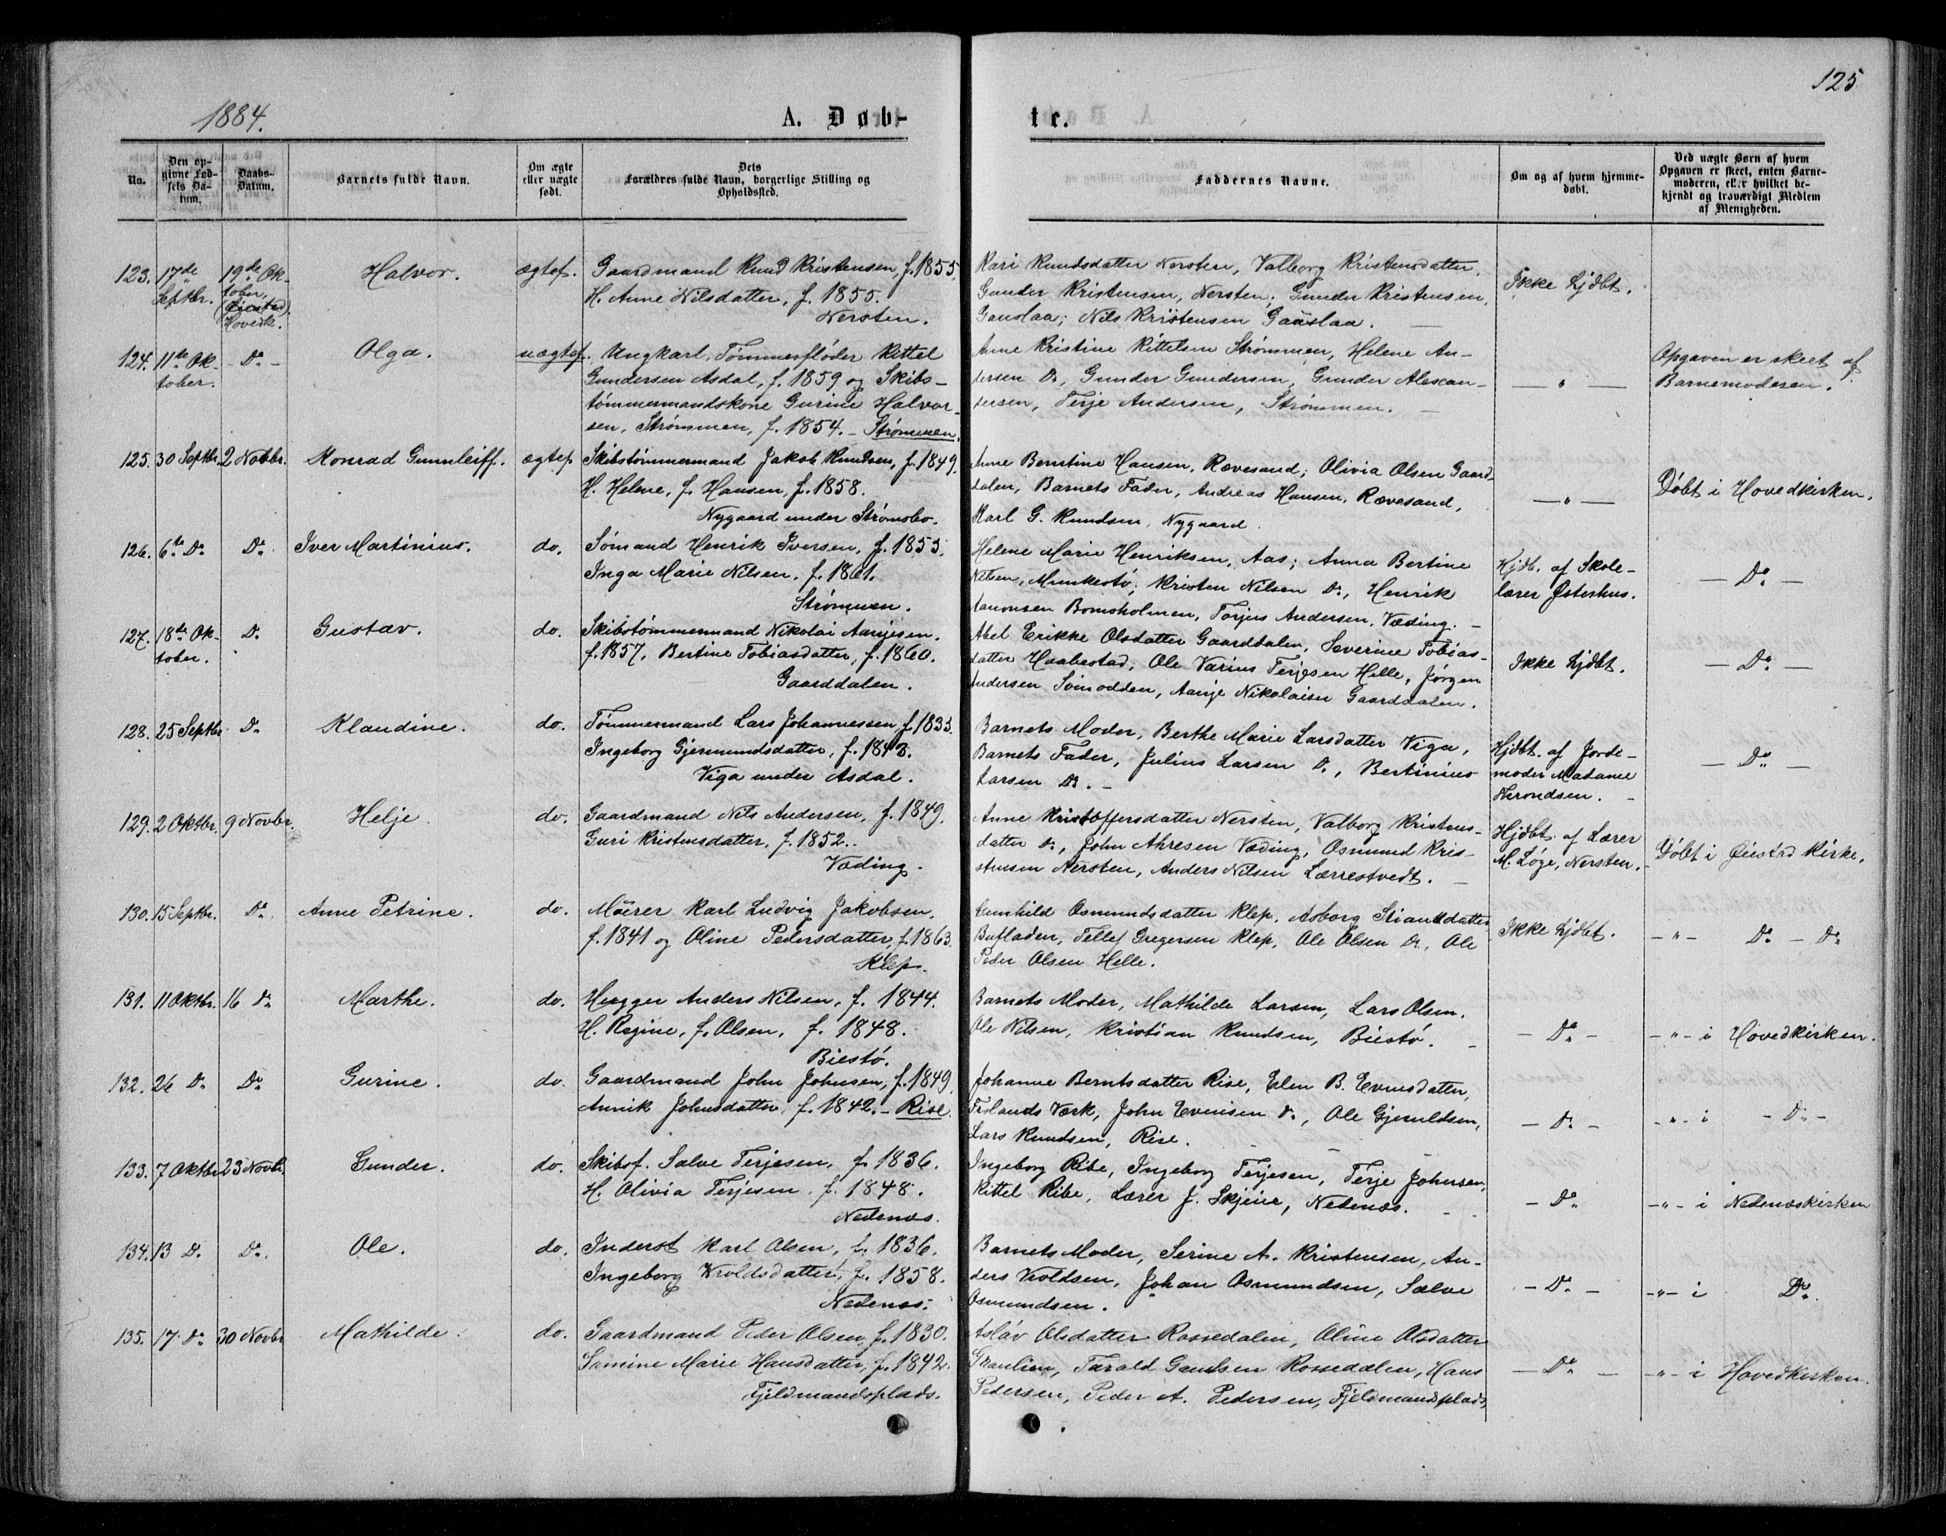 125
1884.
A. Døb-
te.
No.
Den op-
givne Fød-
sels Da-
tum.
Daabs-
Datum.
Barnets fulde Navn.
Om ægte
eller uægte
født.
Dets
Forældres fulde Navn, borgerlige Stilling og
Opholdssted.
Faddernes Navne.
Om og af hvem hjemme-
døbt.
Ved uægte Børn af hvem
Opgaven er skeet, enten Barne-
moderen, eller hvilket be-
kjendt og troværdigt Medlem
af Menigheden.
123. 17de Septbr. 19de Oktober, (Øiestad) Hovedk. Halvor. ægtef.
Gaardmand Knud Kristensen, f. 1855.
H. Anne Nilsdatter, f. 1855.
Nersten.
Kari Knudsdatter Nersten, Valborg Kristensdatter,
Gunder Kristensen, Nersten; Gunder Kristensen
Gauslaa; Nils Kristensen Gauslaa. —
Ikke hjdbt.
124. 11te Oktober. Do - Olga. uægtef.
Ungkarl, Tømmerfløder Kittel
Gundersen Asdal, f. 1859 og Skibs-
tømmermandskone Gurine Halvor-
sen, Strømmen, f. 1854. - Strømmen.
Anne Kristine Kittelsen Strømmen, Helene An-
dersen Do, Gunder Gundersen, Gunder Alexan-
dersen, Terje Andersen, Strømmen. —
— " —
Opgaven er skeet af
Barnemoderen.
125. 30 Septbr. 2 Novbr. Konrad Gunnleiff. ægtef
Skibstømmermand Jakob Knudsen, f. 1849.
H. Helene, f. Hansen, f. 1858.
Nygaard under Strømsbo.
Anne Berntine Hansen, Rævesand; Olivia Olsen Gaard-
dalen, Barnets Fader, Andreas Hansen, Rævesand,
Karl G. Knudsen, Nygaard.
— " —
Døbt i Hovedkirken.
126. 6te Do Do Iver Martinius. do.
Sømand Henrik Iversen, f. 1855.
Inga Marie Nilsen, f. 1861.
Strømmen.
Helene Marie Henriksen, Aas; Anna Bertine
Nilsen, Munkestø; Kristen Nilsen Do, Henrik
Aanonsen Bomsholmen, Torjus Andersen, Væding. -
Hjdb. af Skole-
lærer Østerhus.
— Do —
127. 18de Oktober. Do Gustav. do.
Skibstømmermand Nikolai Aanjesen.
f. 1857, Bertine Tobiasdatter, f. 1860.
Gaarddalen.
Abel Erikke Olsdatter Gaarddalen, Severine Tobias-
datter Haabestad, Ole Varius Terjesen Helle, Jørgen
Andersen Sømodden, Aanje Nikolaisen Gaarddalen.
Ikke hjdbt.
— Do —
128. 25 Septbr. Do Klaudine. do.
Tømmermand Lars Johannessen f. 1835.
Ingeborg Gjermundsdatter, f. 1843.
Viga under Asdal.
Barnets Moder, Berthe Marie Larsdatter Viga,
Barnets Fader, Julius Larsen Do, Bertinius
Larsen Do. -
Hjdbt. af Jorde-
moder Madame
Throndsen. -
— Do —
129. 2 Oktbr. 9 Novbr. Helje. do.
Gaardmand Nils Andersen, f. 1849.
Guri Kristensdatter, f. 1852.
Væding.
Anne Kristoffersdatter Nersten, Valborg Kristens-
datter Do, John Ahresen Væding, Osmund Kris-
stensen Nersten, Anders Nilsen Lærrestvedt. —
Hjdbt. af Lærer
M. Løge, Nersten.
Døbt i Øiestad Kirke.
130. 15 Septbr. Do Anne Petrine. do.
Mürer Karl Ludvig Jakobsen.
f. 1841 og Oline Pedersdatter, f. 1863.
Klep.
Gunhild Osmundsdatter Klep, Asborg Stiansdatter
Bufladen, Tellef Gregersen Klep, Ole Olsen Do, Ole
Peder Olsen Helle.
Ikke hjdbt.
- " - Do - Do
131. 11 Oktbr. 16 Do Marthe. do.
Hugger Anders Nilsen, f. 1844.
H. Regine, f. Olsen, f. 1848.
Biestø.
Barnets Moder, Mathilde Larsen, Lars Olsen,
Ole Nilsen, Kristian Knudsen, Biestø. -
- Do -
- " - i Hovedkirken.
132. 26 Do Do Gurine. do.
Gaardmand John Johnsen, f. 1849.
Annik Johnsdatter, f. 1842. - Rise.
Johanne Berntsdatter Rise, Elen B. Evensdatter,
Frolands Værk, John Evensen Do, Ole Gjeruldsen,
Lars Knudsen, Rise. -
- Do -
- " - i - Do -
133. 7 Oktbr 23 Novbr. Gunder. do.
Skibsf. Salve Terjesen, f. 1836.
H. Olivia Terjesen, f. 1848.
Nedenæs.
Ingeborg Ribe, Ingeborg Terjesen, Terje Johnsen,
Kittel Ribe, Lærer J. Skjeie, Nedenæs. -
- Do
- " - i Nedenæskirken
134. 13 Do. Do. Ole. do.
Inderst Karl Olsen, f. 1836.
Ingeborg Kroldsdatter, f. 1858.
Nedenæs.
Barnets Moder, Serine A. Kristensen, An-
ders Kroldsen, Johan Osmundsen, Salve
Osmundsen.
- Do -
- " - i Do.
135. 17. Do 30 Novbr Mathilde. do.
Gaardmand Peder Olsen, f. 1830.
Samine Marie Hansdatter, f. 1842.
Fjeldmandsplads.
Aslav Olsdatter Rossedalen, Oline Olsdatter
Graulien, Tarald Rossedalen, Hans
Pedersen, Peder A. Pedersen, Fjeldmandsplads.
- Do -
- " - i Hovedkirken.